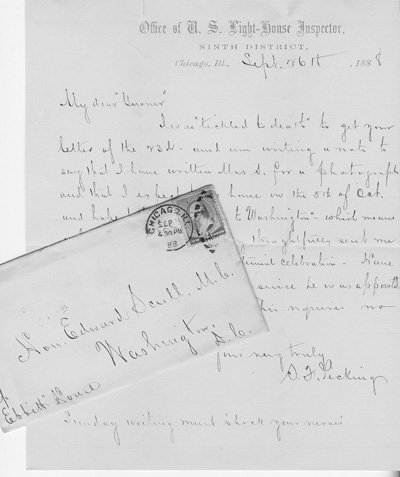 Office of U. S. Light-House Inspector,
NINTH DISTRICT,
Chicago, Ill., Sept. 26th, 1888
My dear
I was "tickled to death" to get your
letter of the 23d - and am writing a note to
say that I have written Mrs S. for a photograph
and that I expect home on the 5th of Oct.
and hope to Washington" which means
thoughtfully sent me
celebration - Kane
service he was
this requires no
yours very truly
D. F. Picking
Sunday writing must shock your
CHICAGO, ILL.
SEP
4 PM
88
Hon. Edward Scull. M.C.
Washington,
D.C.
Ebbitt House